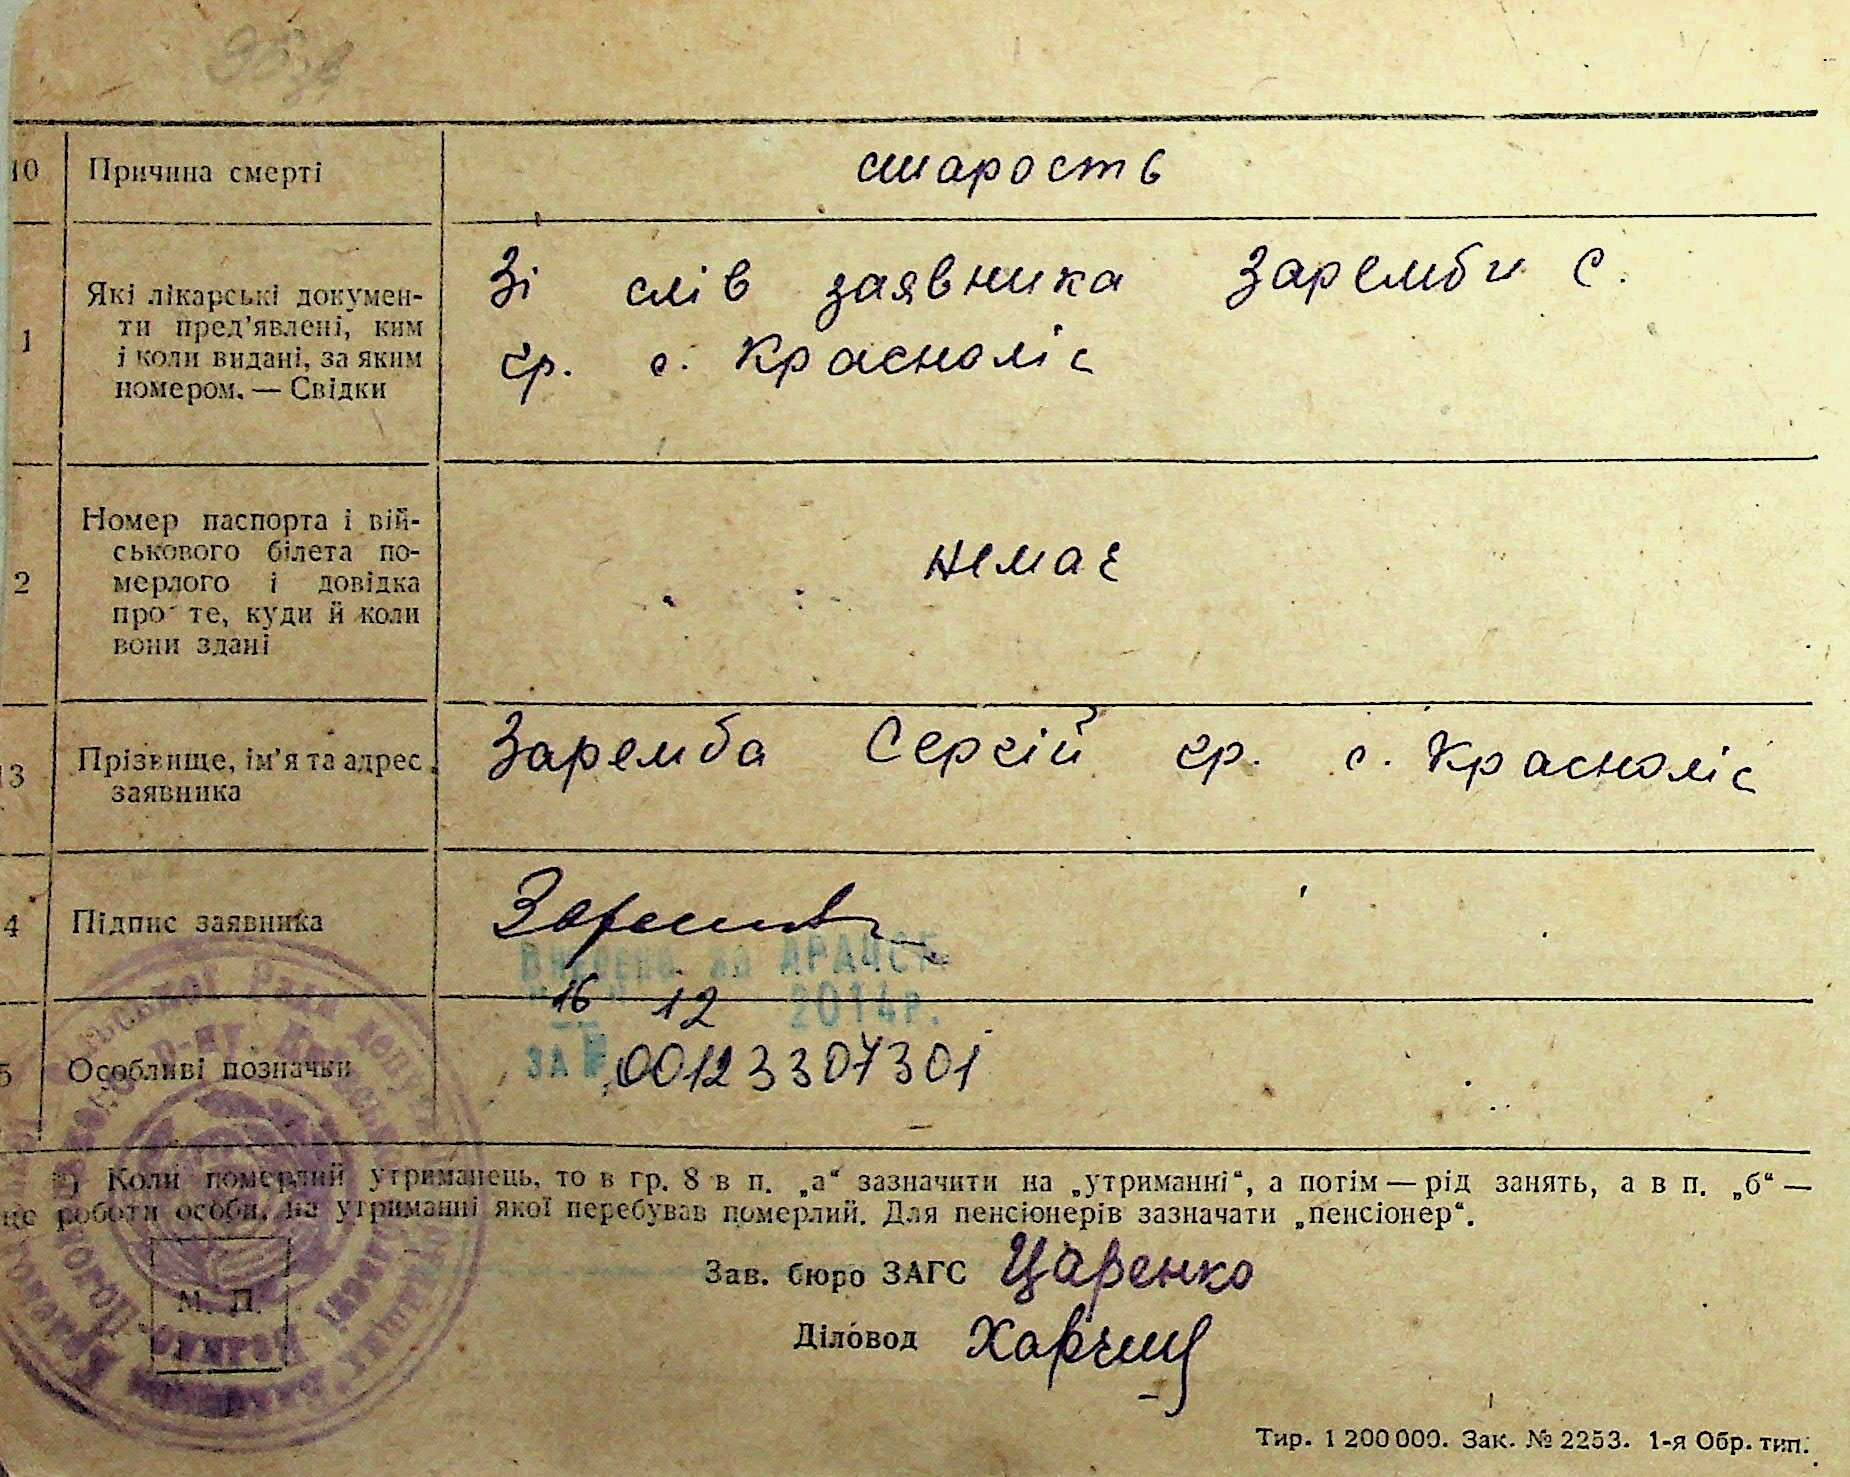 10 Причина смерті старость
1 Які лікарські докумен-
ти пред’явлені, ким
і коли видані, за яким
номером. — Свідки
Зі слів заявника Заремби С.
гр. с. Красноліс
2 Номер паспорта і вій-
ськового білета по-
мерлого і довідка
про те, куди й коли
вони здані
немає
13 Прізвище, ім’я та адрес
заявника
Заремба Сергій гр. с. Красноліс
4 Підпис заявника
Внесено до ДРАЦСГ
16 12 2014р.
5 Особливі позначки
ЗА № 00123307301
*) Коли померлий утриманець, то в гр. 8 в п. „а“ зазначити на „утриманні“, а потім — рід занять, а в п. „б“ —
це роботи особи, на утриманні якої перебував померлий. Для пенсіонерів зазначати „пенсіонер“.
Зав. бюро ЗАГС Царенко
Діловод
М. П.
Тир. 1 200 000. Зак. № 2253. 1-я Обр. тип.